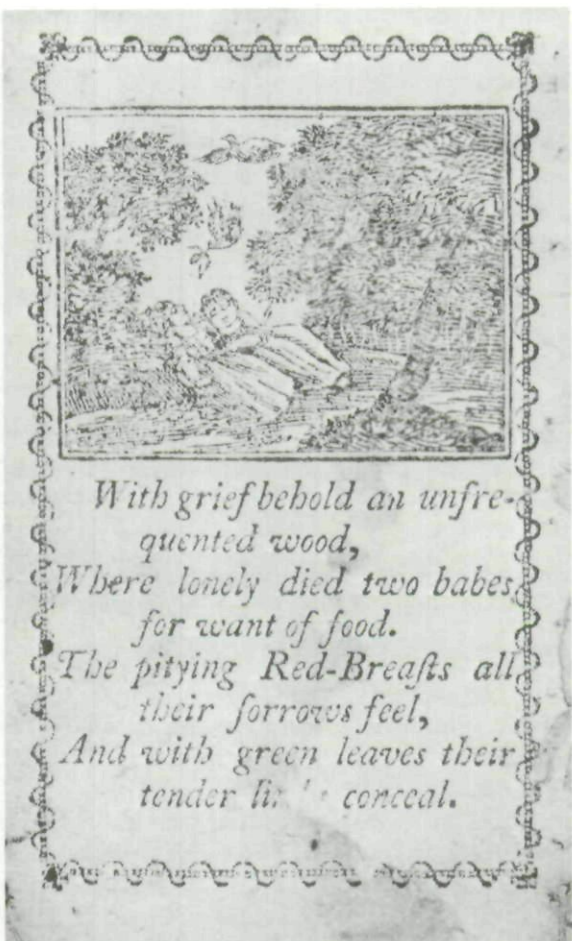 With grief behold an unfre-
quented wood,
Where lonely died two babes
for want of food.
The pitying Red-Breaſts all
their ſorrows feel,
And with green leaves their
tender conceal.